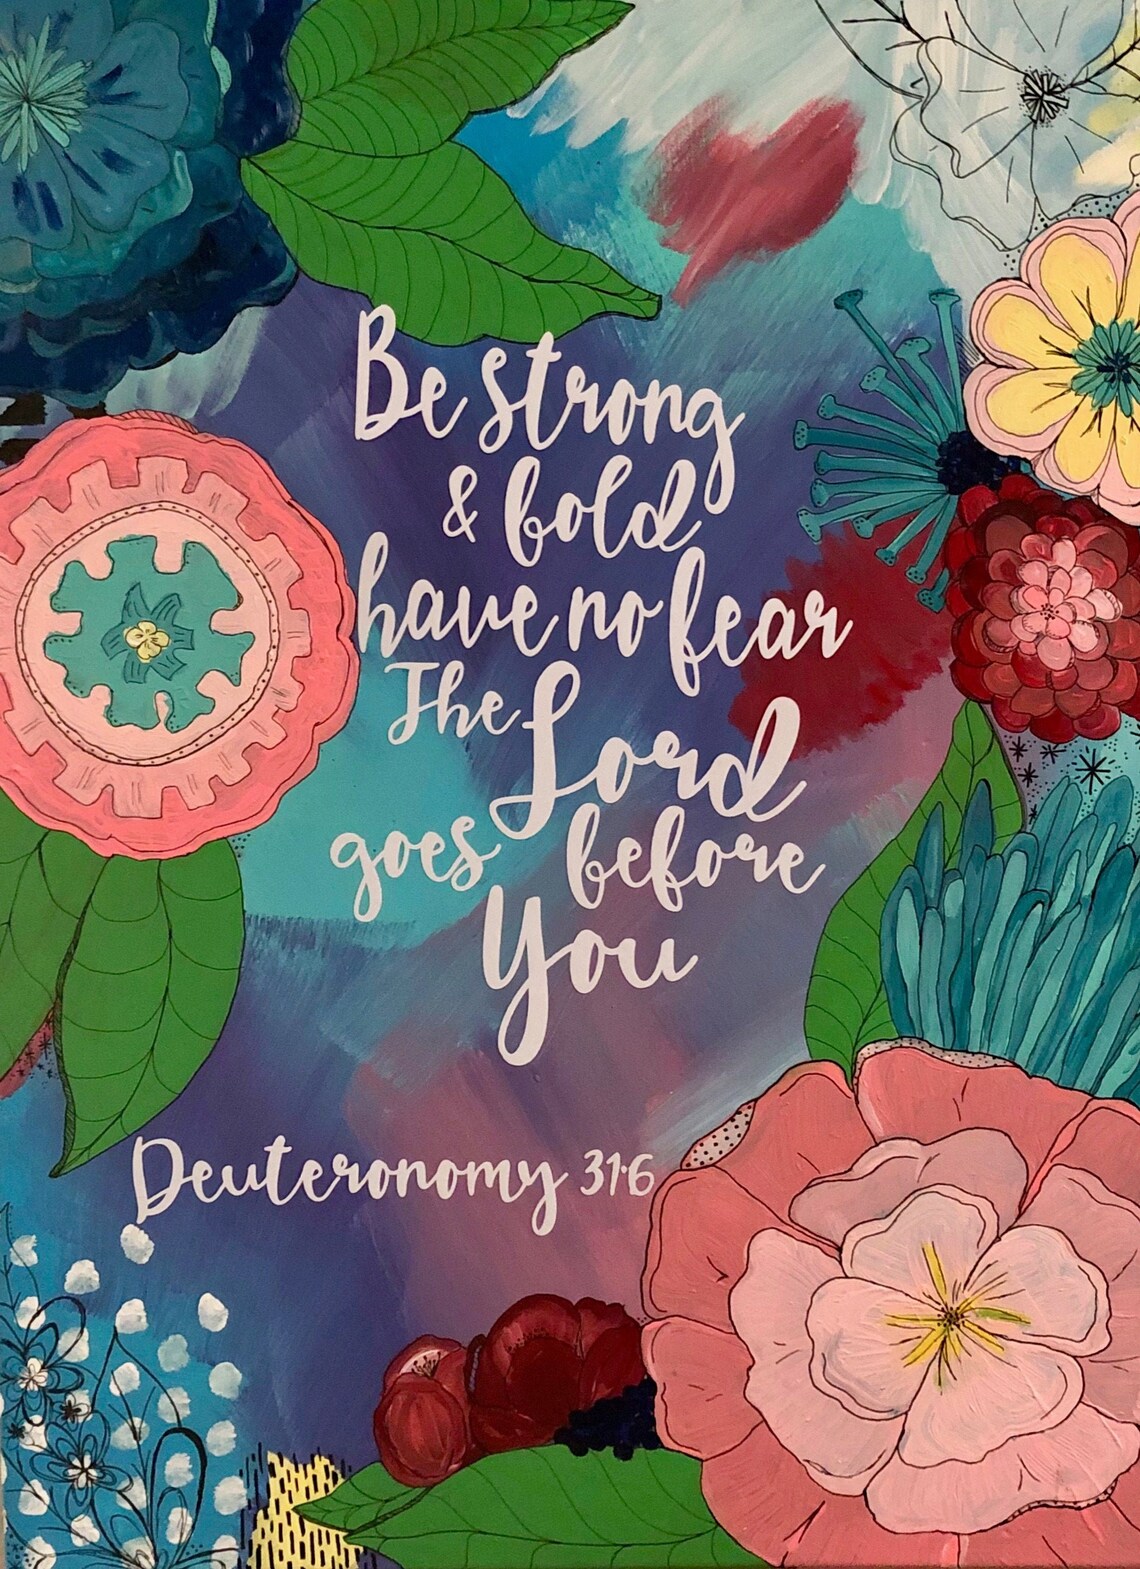 Be strong
& bold
have no fear
The Lord
goes before
You
Deuteronomy 31:6